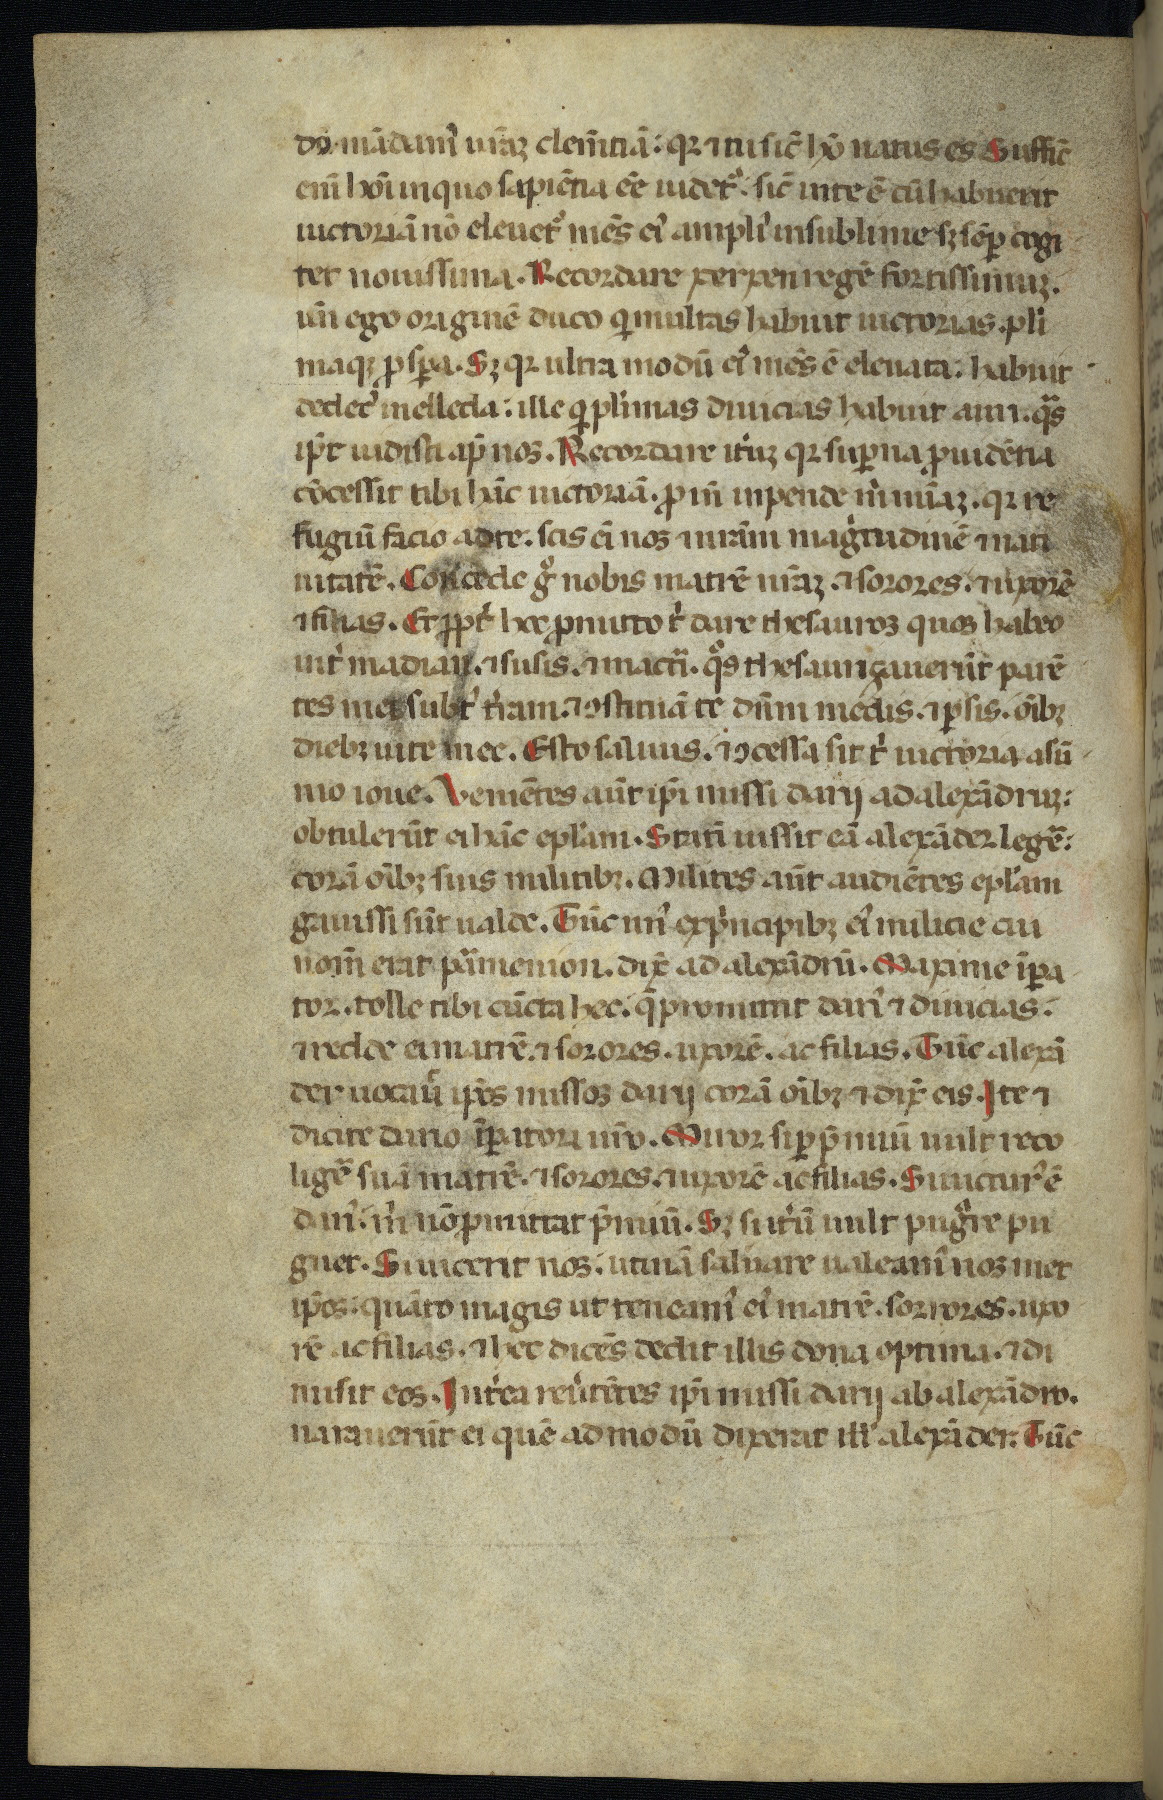 do. mādam᷒ ur̄aʒ clem̄tiā: qꝛ ⁊ tu sic̄ hō natus es Suffic̄
eni᷒ hōi in quo sapiētia eē uidet᷒. sic̄ in te ē cū habuerit
uictoriā nō eleuet᷒ mēs ei᷒ ampli᷒ in sublime sʒ sēꝑ cogi
tet nouissima. Recordare xerxen regē fortissimuʒ.
un̄ ego originē duco qi multas habuit uictorias. pl᷒i
maqʒ ꝓsꝑa. Sʒ qꝛ ultra modū ei᷒ mēs ē eleuata: habuit
dedec᷒ in ellecla: ille qi pl᷒imas diuicias habuit auri. qas
ip̄e uidisti ap̄ nos. Recordare it᷒uʒ qꝛ suꝑna ꝓuidētia
cōcessit tibi hāc uictoriā. ꝓin̄ inpende m̄ miīaʒ. qꝛ re
fugiū facio ad te. scis ei᷒ nos ⁊ ur̄am magi᷒tudinē ⁊ nati
uitatē. Concede gͦ nobis matrē ur̄aʒ. ⁊ sorores. ⁊ uxorē
⁊ filias. Et ꝓpt᷒ hec ꝓmitto t᷒ dare thesauros quos habeo
int᷒ madian. ⁊ susis. ⁊ mact᷒i. qͦs thesaurizauerūt parē
tes mei subt᷒ t᷒ram. ⁊ ꝯstituā te dn̄m medis. ⁊ ꝑsis. oībʒ
diebʒ uite mee. Esto saluus. ⁊ ꝯcessa sit t᷒ uictoria a sū
mo ioue. Veniētes aūt ip̄i missi darij ad alexādruʒ:
obtulerūt ei hāc eplam. Statī iussit eā alexāder legē:
corā oībʒ suis militibʒ. Milites aūt audiētes eplam
gauissi sūt ualde. Tūc un᷒ ex pi᷒ncipibʒ ei᷒ milicie cui
nom̄ erat pamenion. dix̄ ad alexādrū. Maxime īꝑa
tor. tolle tibi cūcta hec. q̄ promittit dari᷒ ⁊ diuicias.
⁊ redde ei matrē. ⁊ sorores. uxorē. ac filias. Tūc alexā
der uocau᷒ ip̄os missos darij corā oībʒ ⁊ dix̄ eis. Ite ⁊
dicite dario īꝑatori ur̄o. Miror si ꝑ p̄miū uult reco
ligē᷒ suā matrē. ⁊ sorores. ⁊ uxorē ac filias. Si uictur᷒ ē
dari᷒. m᷒ nō ꝓmittat p̄miū. Sʒ si it᷒ū uult pugͣre pu
gnet. Si uicerit nos: utinā saluare ualeam᷒ nos met
ip̄os: quāto magis ut teneam᷒ ei᷒ matrē. sorrores. uxo
rē ac filias. ⁊ hec dicēs dedit illis dona optima. ⁊ di
misit eos. Int᷒ea reu᷒tētes ip̄i missi darij ab alexādro.
naraūerūt ei quē ad modū dixerat ill᷒ alexāder. Tūc